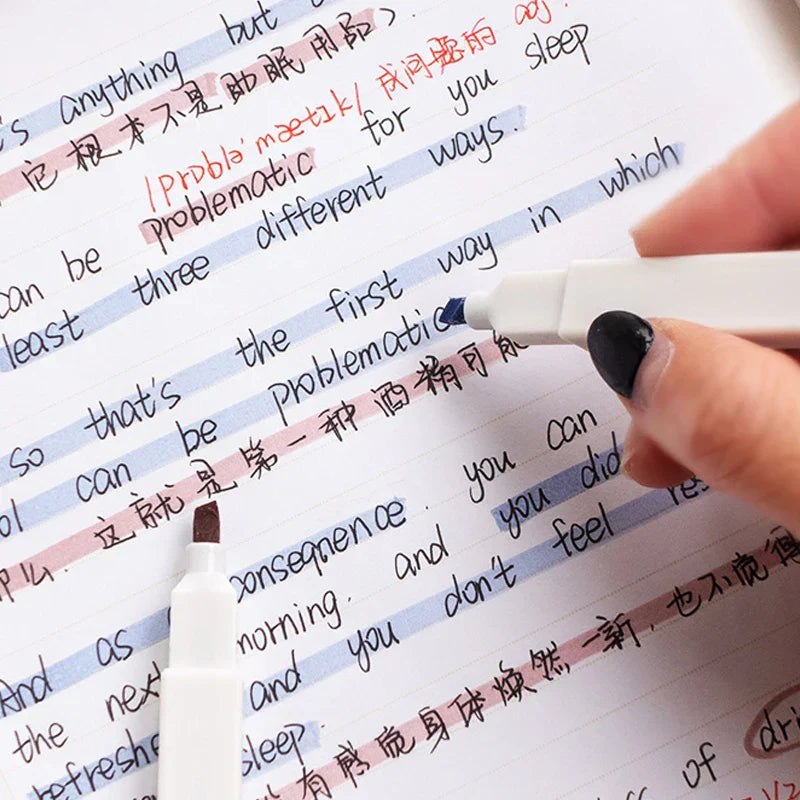 's anything but
它根本不是助眠用品〉.
/ˌprɒblə'mætɪk/ 成问题的 adj.
can be problematic for you sleep
least three different ways.
so that's the first way in which
ol can be problematic
那么. 这就是第一种酒精可能
And as consequence. you can
the next morning. and you did
refreshe and you don't feel res
sleep.
有感觉身体焕然一新. 也不觉得
of dri